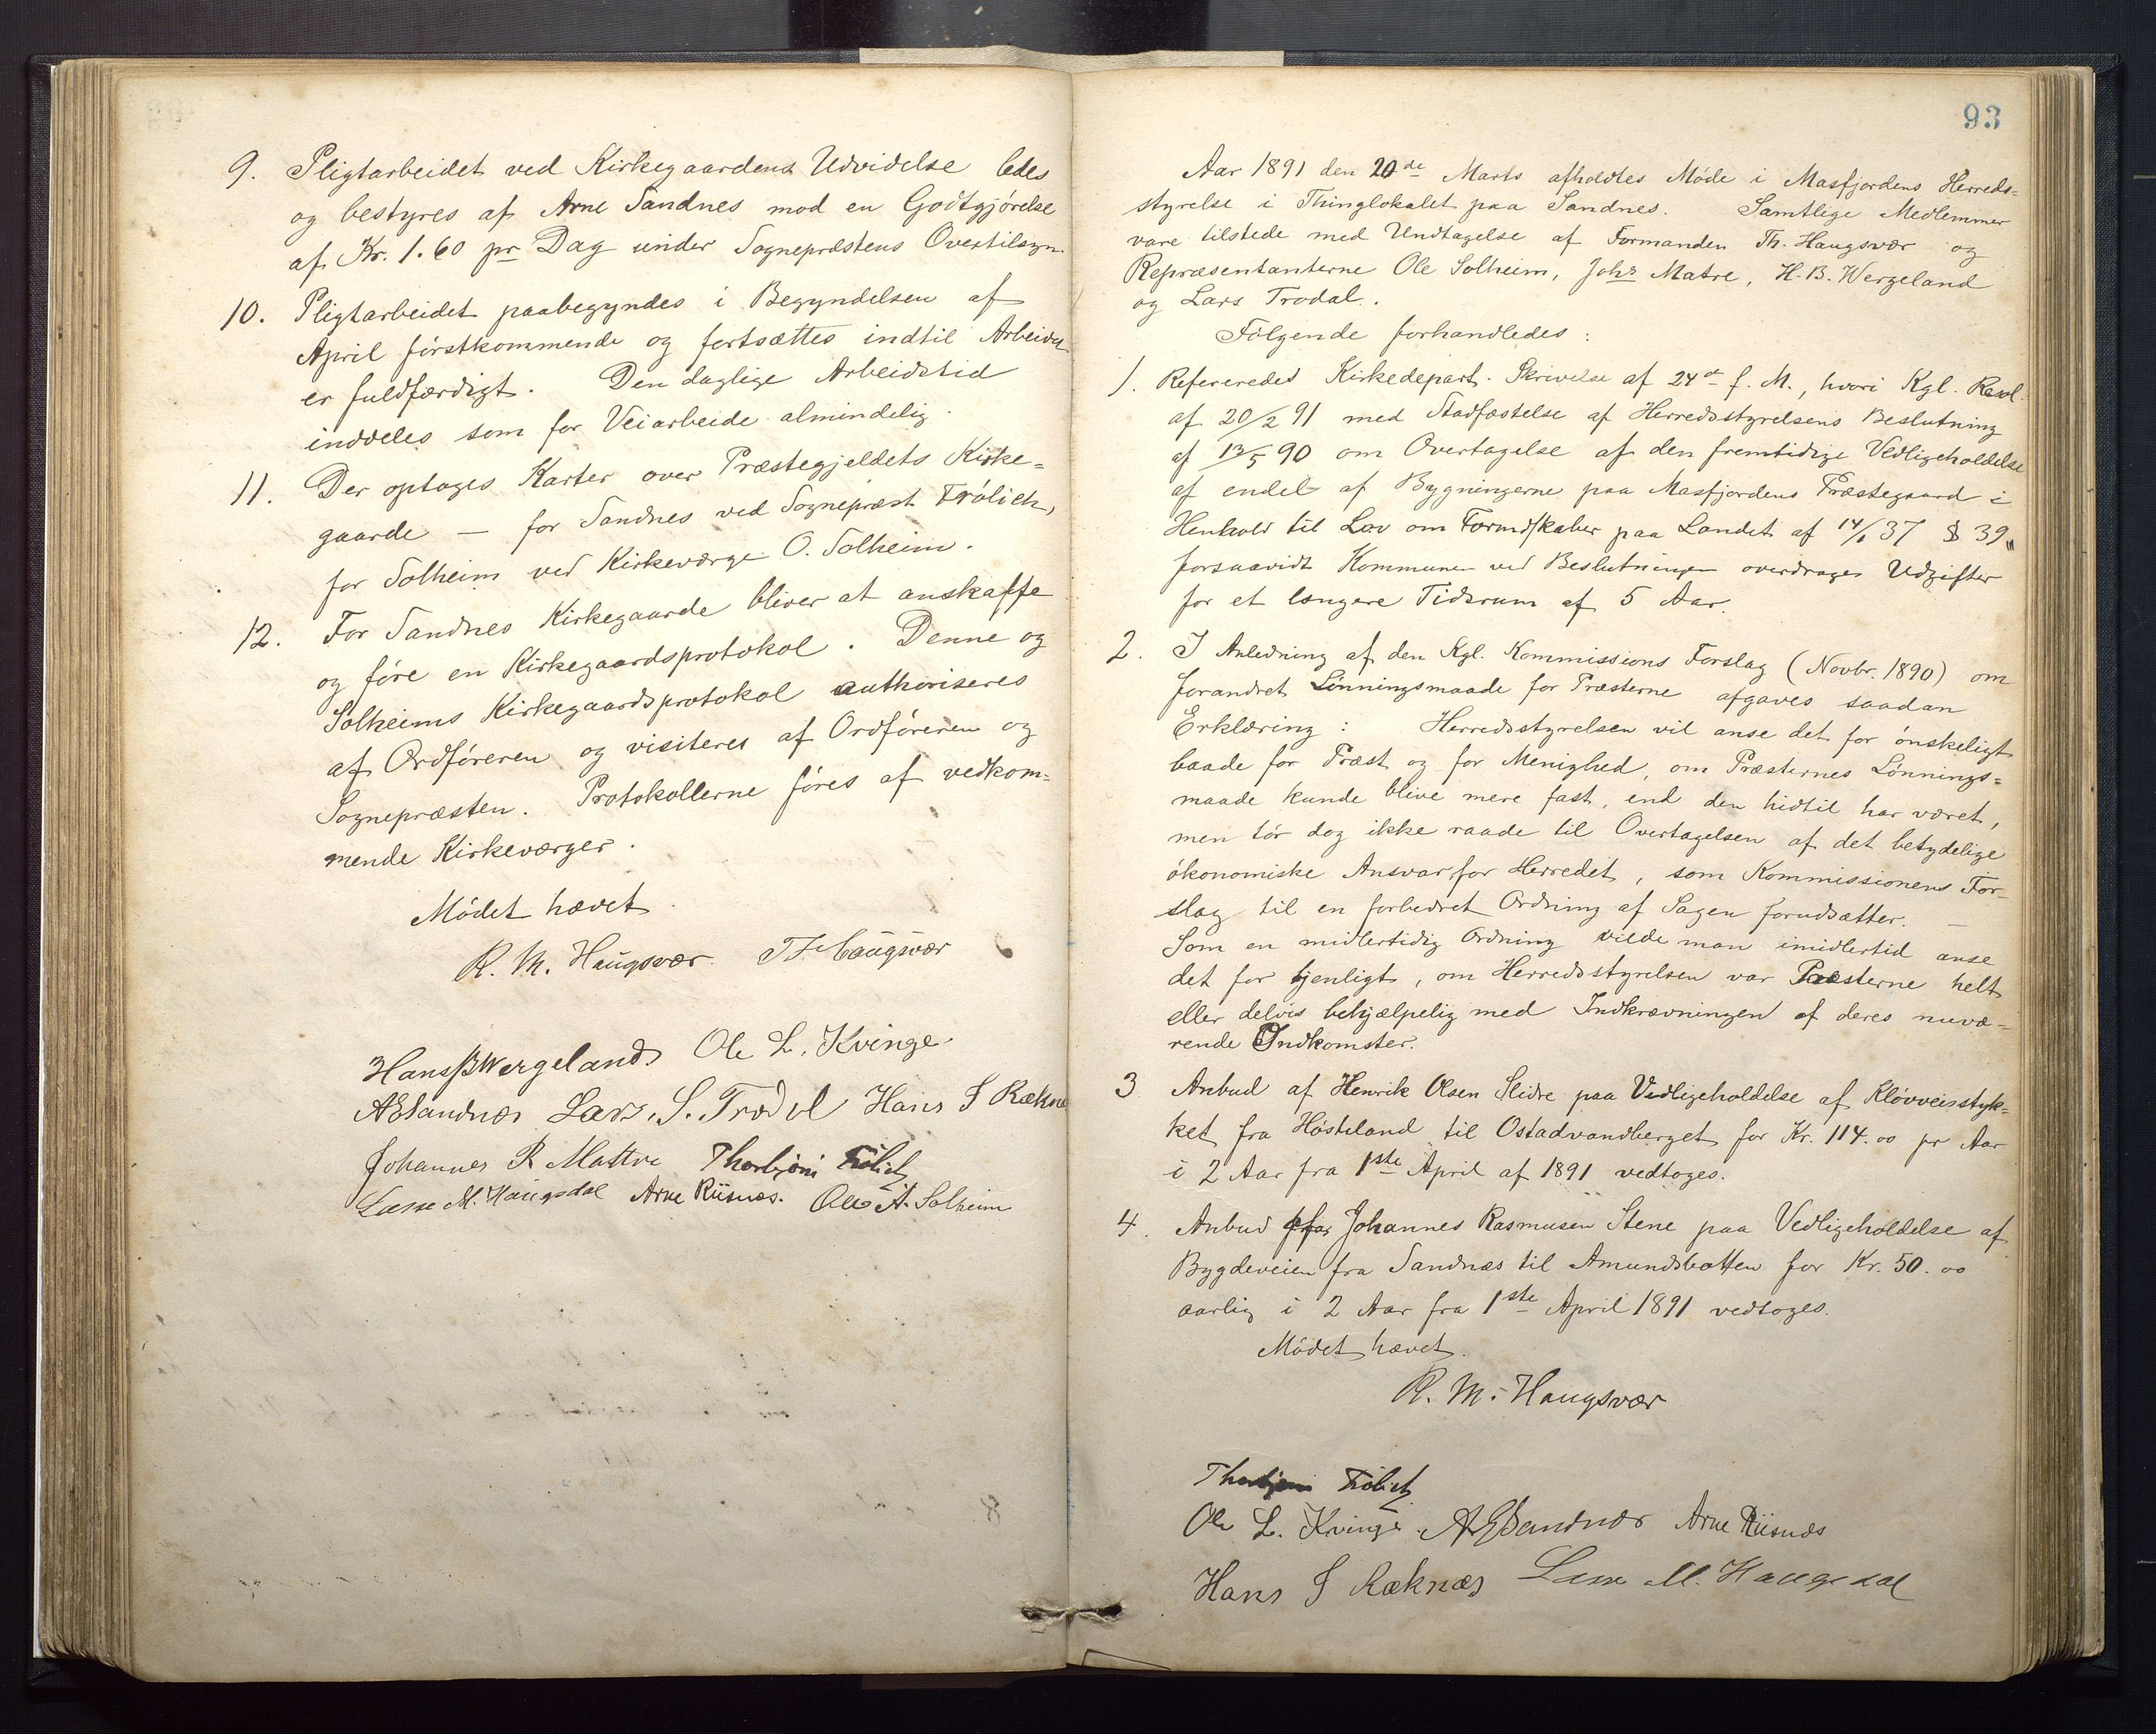 9. Pligtarbeidet ved Kirkegaardens Udvidelse ledes
og bestyres af Arne Sandnes mod en Godtgjørelse
af Kr. 1.60 pr Dag under Sognepræstens Overtilsyn.
10. Pligtarbeidet paabegyndes i Begyndelsen af
April førstkommende og fortsættes indtil Arbeidet
er fuldfærdigt. Den daglige Arbeidstid
inddeles som for Veiarbeide almindelig.
11. Der optages Karter over Præstegjeldets Kirke=
gaarde — for Sandnes ved Sognepræst Frølich,
for Solheim ved Kirkeværge O. Solheim.
12. For Sandnes Kirkegaarde bliver at anskaffe
og føre en Kirkegaardsprotokol. Denne og
Solheims Kirkegaardsprotokol authoriseres
af Ordføreren og visiteres af Ordføreren og
Sognepræsten. Protokollerne føres af vedkom=
mende Kirkeværger.
Mødet hævet.
R. M. Haugsvær Th Haugsvær
Hans B Wergeland Ole L. Kvinge
AESandnes Lars. S. Trodal Hans I Rækne
Johannes R Mattre Thorbjørn Frølich
Lasse M. Haugsdal Arne Riisnæs. Ole A. Solheim
93
Aar 1891 den 20de Marts afholdtes Møde i Masfjordens Herreds=
styrelse i Thinglokalet paa Sandnes. Samtlige Medlemmer
vare tilstede med Undtagelse af Formanden Th. Haugsvær og
Repræsentanterne Ole Solheim, Johs Matre, H. B. Wergeland
og Lars Trodal.
Følgende forhandledes:
1. Refereredes Kirkedepart. Skrivelse af 24de f. M., hvori Kgl. Resol.
af 20/2 91 med Stadfæstelse af Herredsstyrelsens Beslutning
af 13/5 90 om Overtagelse af den fremtidige Vedligeholdelse
af endel af Bygningerne paa Masfjordens Præstegaard i
Henhold til Lov om Formdskaber paa Landet af 14/1 37 § 39,
forsaavidt Kommunen ved Beslutningen overdrages Udgifter
for et længere Tidsrum af 5 Aar.
2. I Anledning af den Kgl. Kommissions Forslag (Novbr. 1890) om
forandret Lønningsmaade for Præsterne afgaves saadan
Erklæring: Herredsstyrelsen vil anse det for ønskeligt
baade for Præst og for Menighed, om Præsternes Lønnings=
maade kunde blive mere fast, end den hidtil har været,
men tør dog ikke raade til Overtagelsen af det betydelige
økonomiske Ansvar for Herredet, som Kommissionens For-
slag til en forbedret Ordning af Sagen forudsætter. —
Som en midlertidig Ordning vilde man imidlertid anse
det for tjenligt, om Herredsstyrelsen var Præsterne helt
eller delvis behjælpelig med Indkrævningen af deres nuvæ=
rende Indkomster.
3 Anbud af Henrik Olsen Slidre paa Vedligeholdelse af Kløvveisstyk=
ket fra Høsteland til Ostadvandberget for Kr. 114.00 pr Aar
i 2 Aar fra 1ste April af 1891 vedtoges.
4. Anbud fra Johannes Rasmusen Stene paa Vedligeholdelse af
Bygdeveien fra Sandnæs til Amundsbotten for Kr. 50.00
aarlig i 2 Aar fra 1ste April 1891 vedtoges.
Mødet hævet.
R. M. Haugsvær
Thorbjørn Frølich
Ole L. Kvinge. AESandnes Arne Riisnæs
Hans I Ræknæs Lasse M. Haugsdal